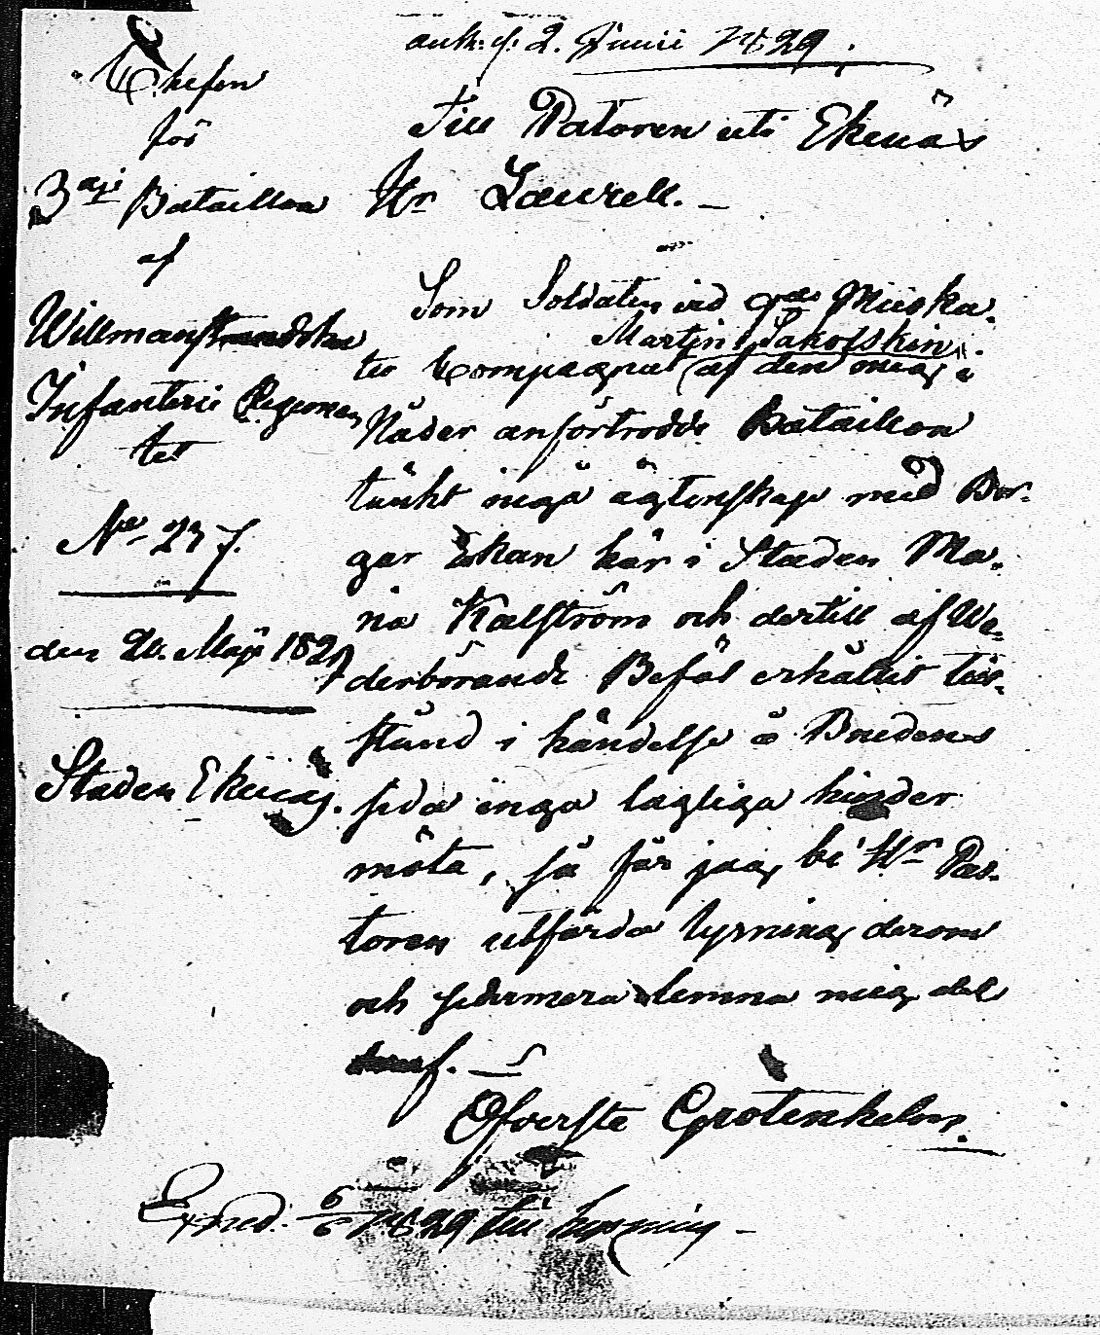 ank: d: 2. Junii 1829.
Chefen
för
3dji Bataillon
af
Willmanstrandska
Infanterie Regemen
tet
No 237.
den 26. Maji 1829
Staden Ekenäs.
Till Pastoren uti Ekenäs
Hr Laurell. –
Som Soldaten vid Muska-
Martin Jakofskin
ter Compagniet af den mig i
Nåder anförtrodde Bataillon
tänkt ingå ägtenskap med Bor-
gar Enkan här i Staden Ma-
ria Kalström och dertill af We-
derbörande Befäl erhållit till-
stånd i händelse å Brudens
sida inga lagliga hinder
möta, så får jag be Hrr Pas-
toren utfärda lysning derom
och sedermera lemna mig del
deraf. –
Öfverste Grotenhelm.
Exped. 6/6 1829 till lysning –